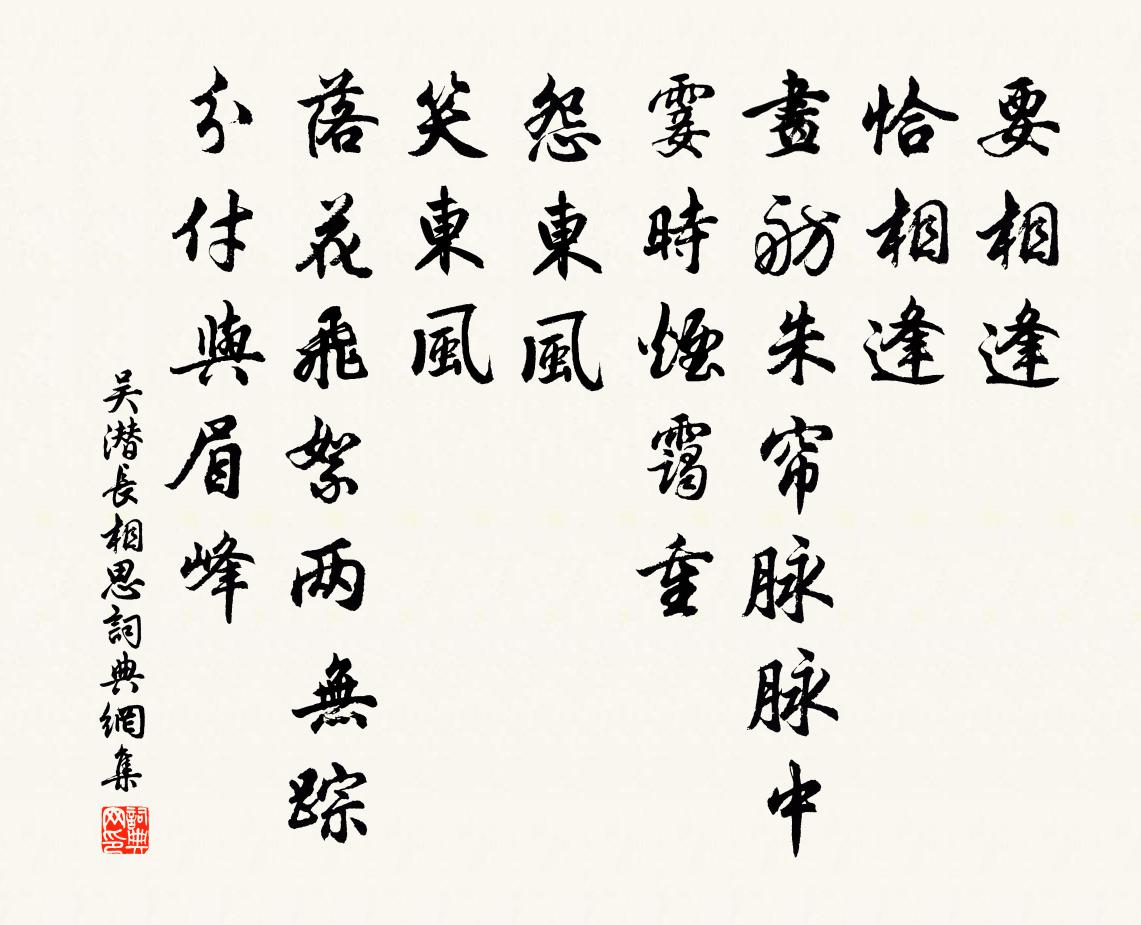 要相逢
恰相逢
畫舫朱帘脉脉中
霎時煙靄重
怨東風
笑東風
落花飛絮两無踪
分付與眉峰
吴潜長相思詞典網集
詞典网印